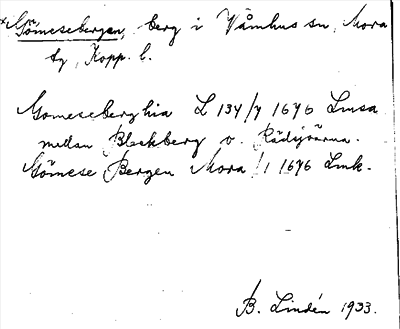 *Gömesebergen, berg i Våmhus sn, Mora
tg, Kopp. l.
Gomeseberghia L 134/7 1676 Lmsa
mellan Bleckberg o.
Gömese Bergen Mora 1/1 1676 Lmk.
B. Lindén 1933.